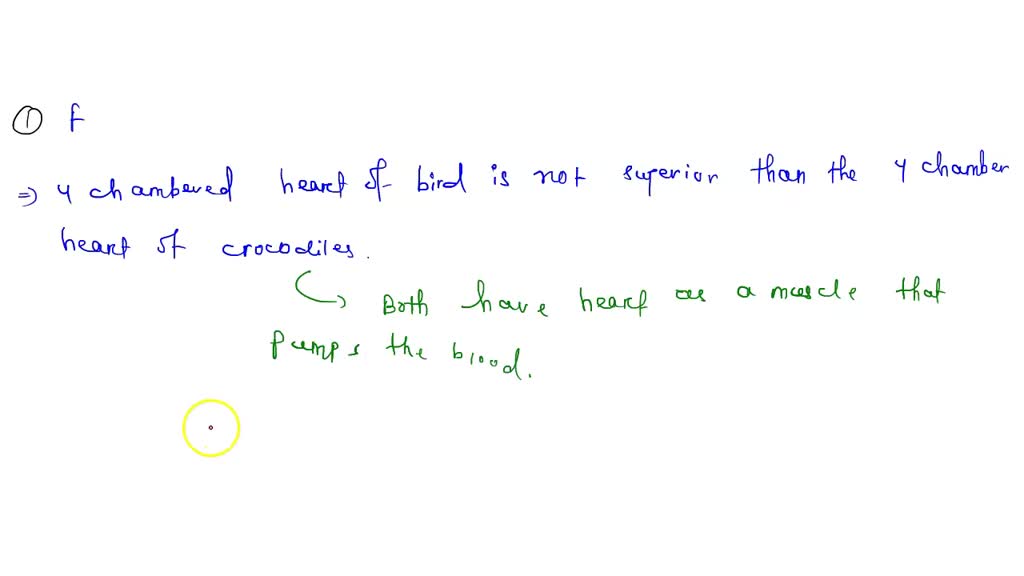 ① F
⇒ 4 chambered heart of bird is not superior than the 4 chamber
heart of crocodiles.
Both have heart as a muscle that
pumps the blood.